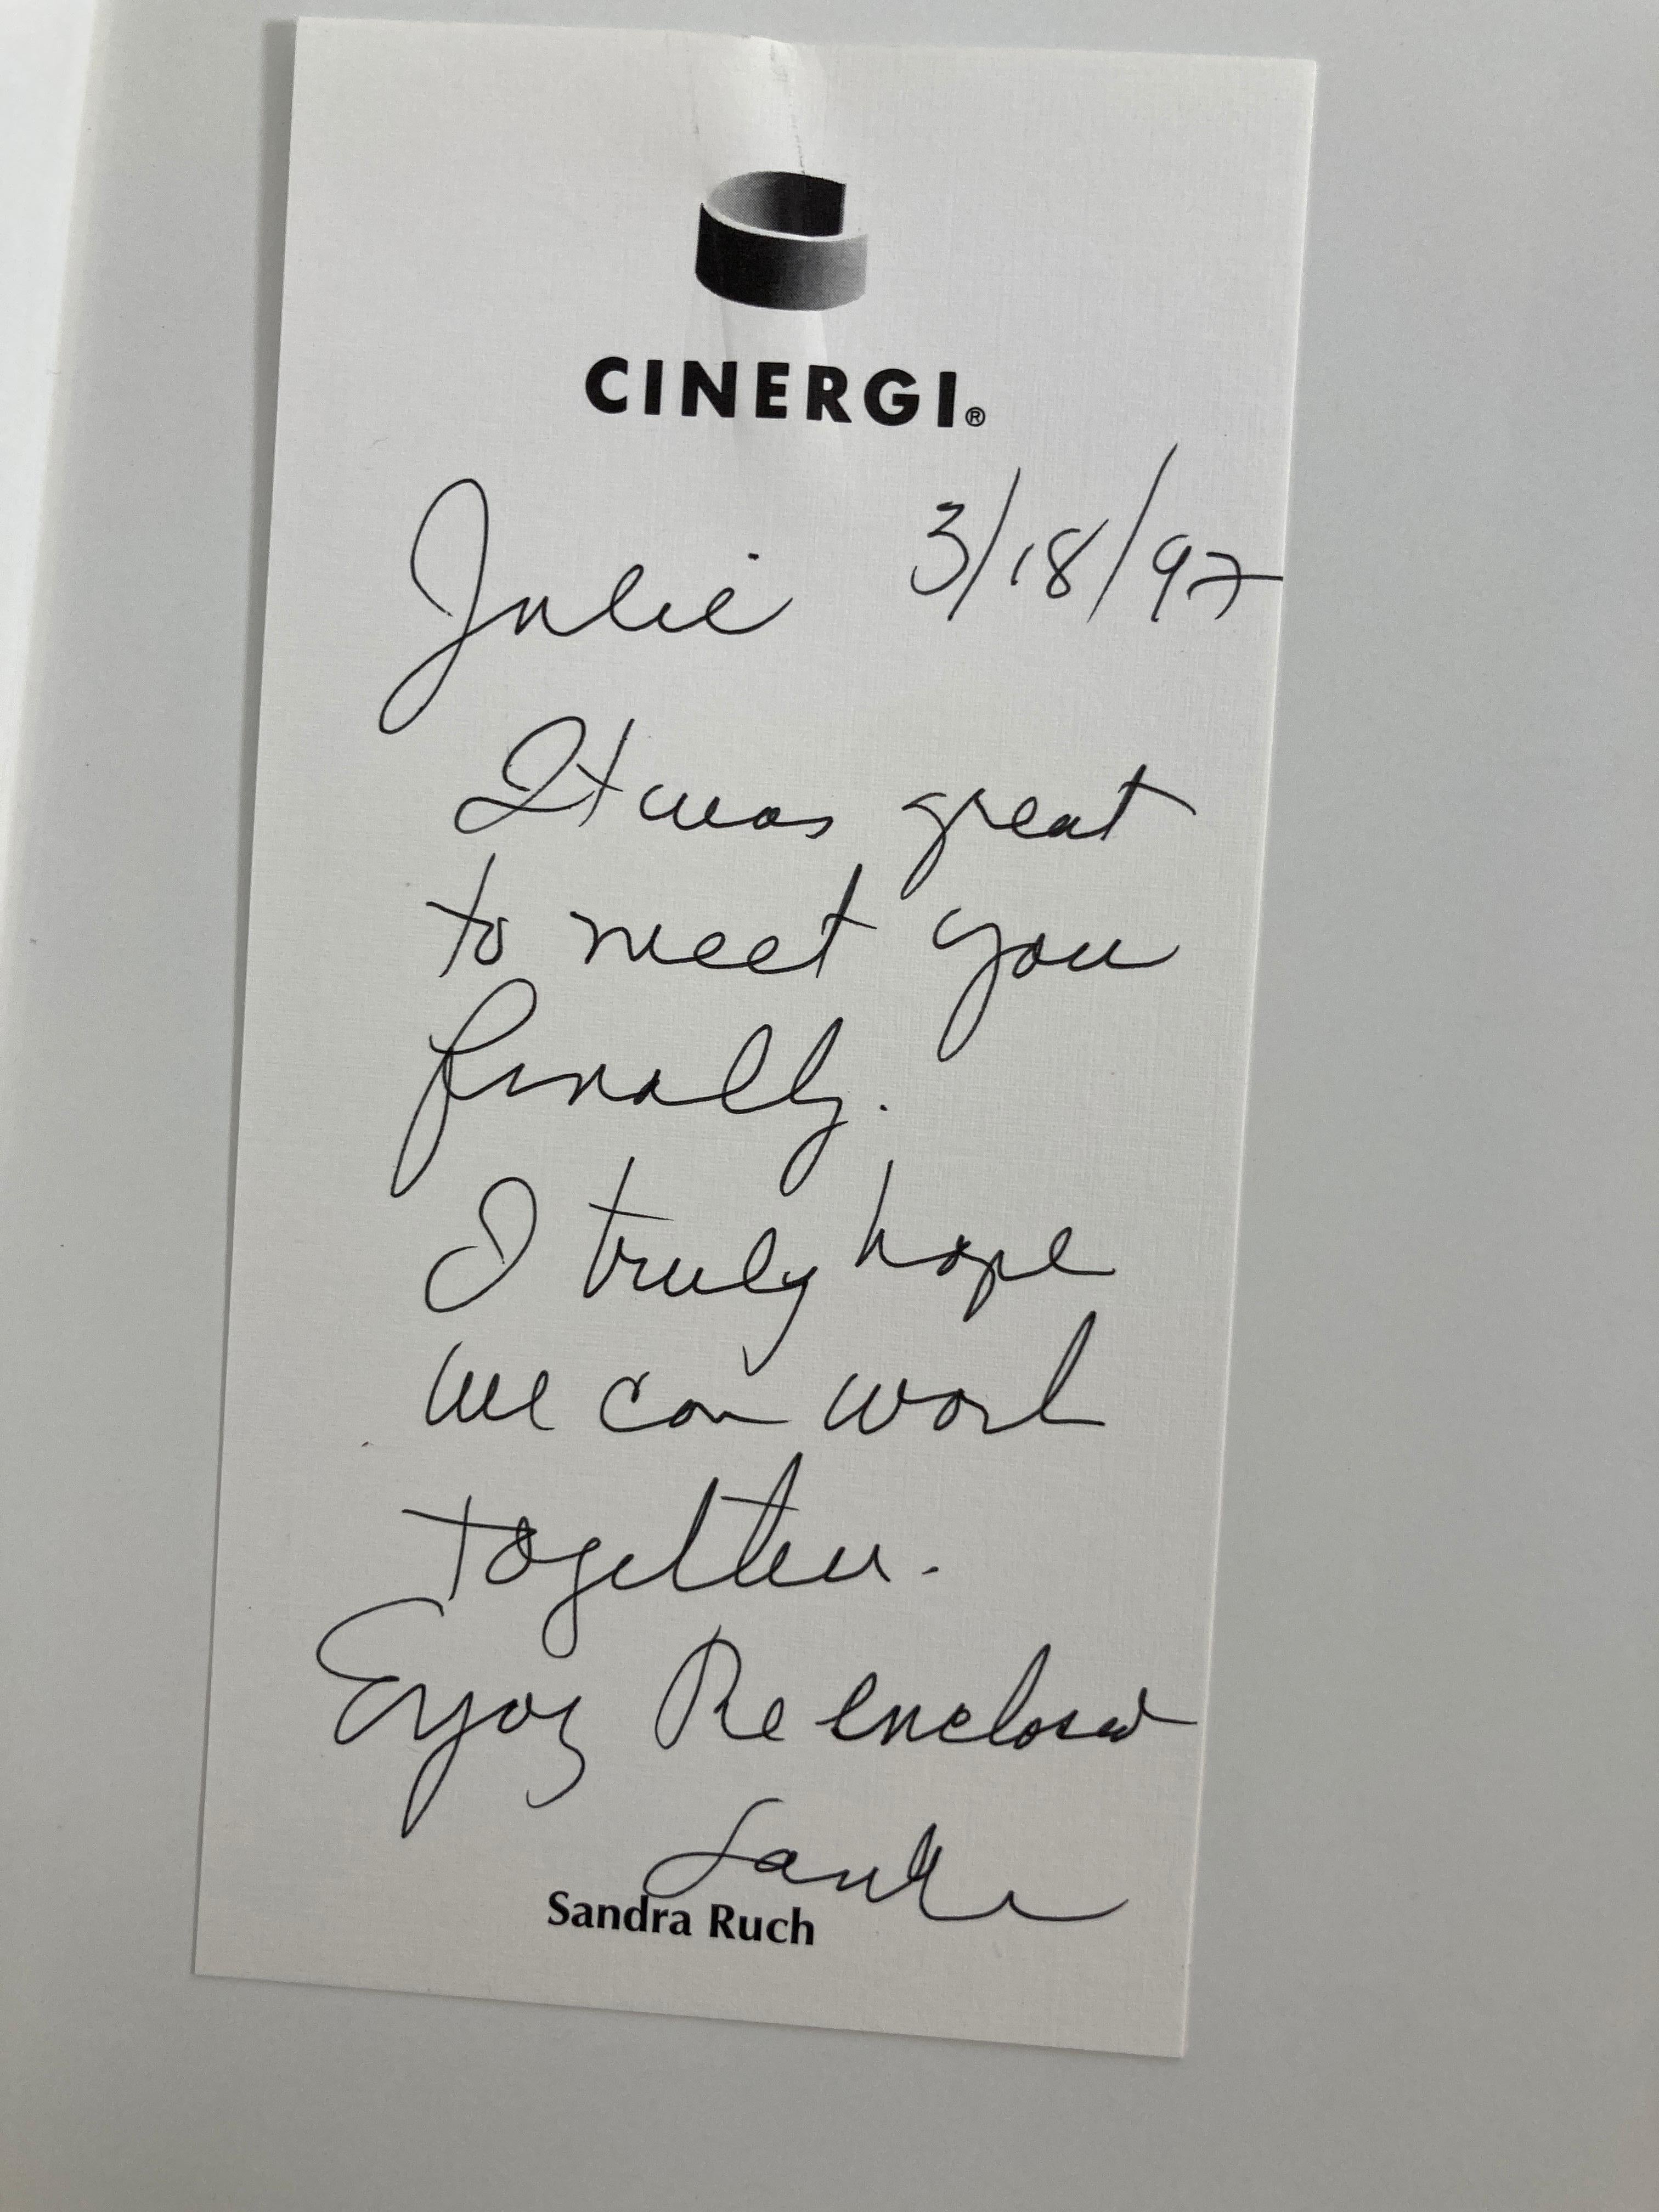 CINERGI®
Julie 3/18/97
It was great
to meet you
finally.
I truly hope
we can work
together.
Enjoy the enclosed
Sandra
Sandra Ruch